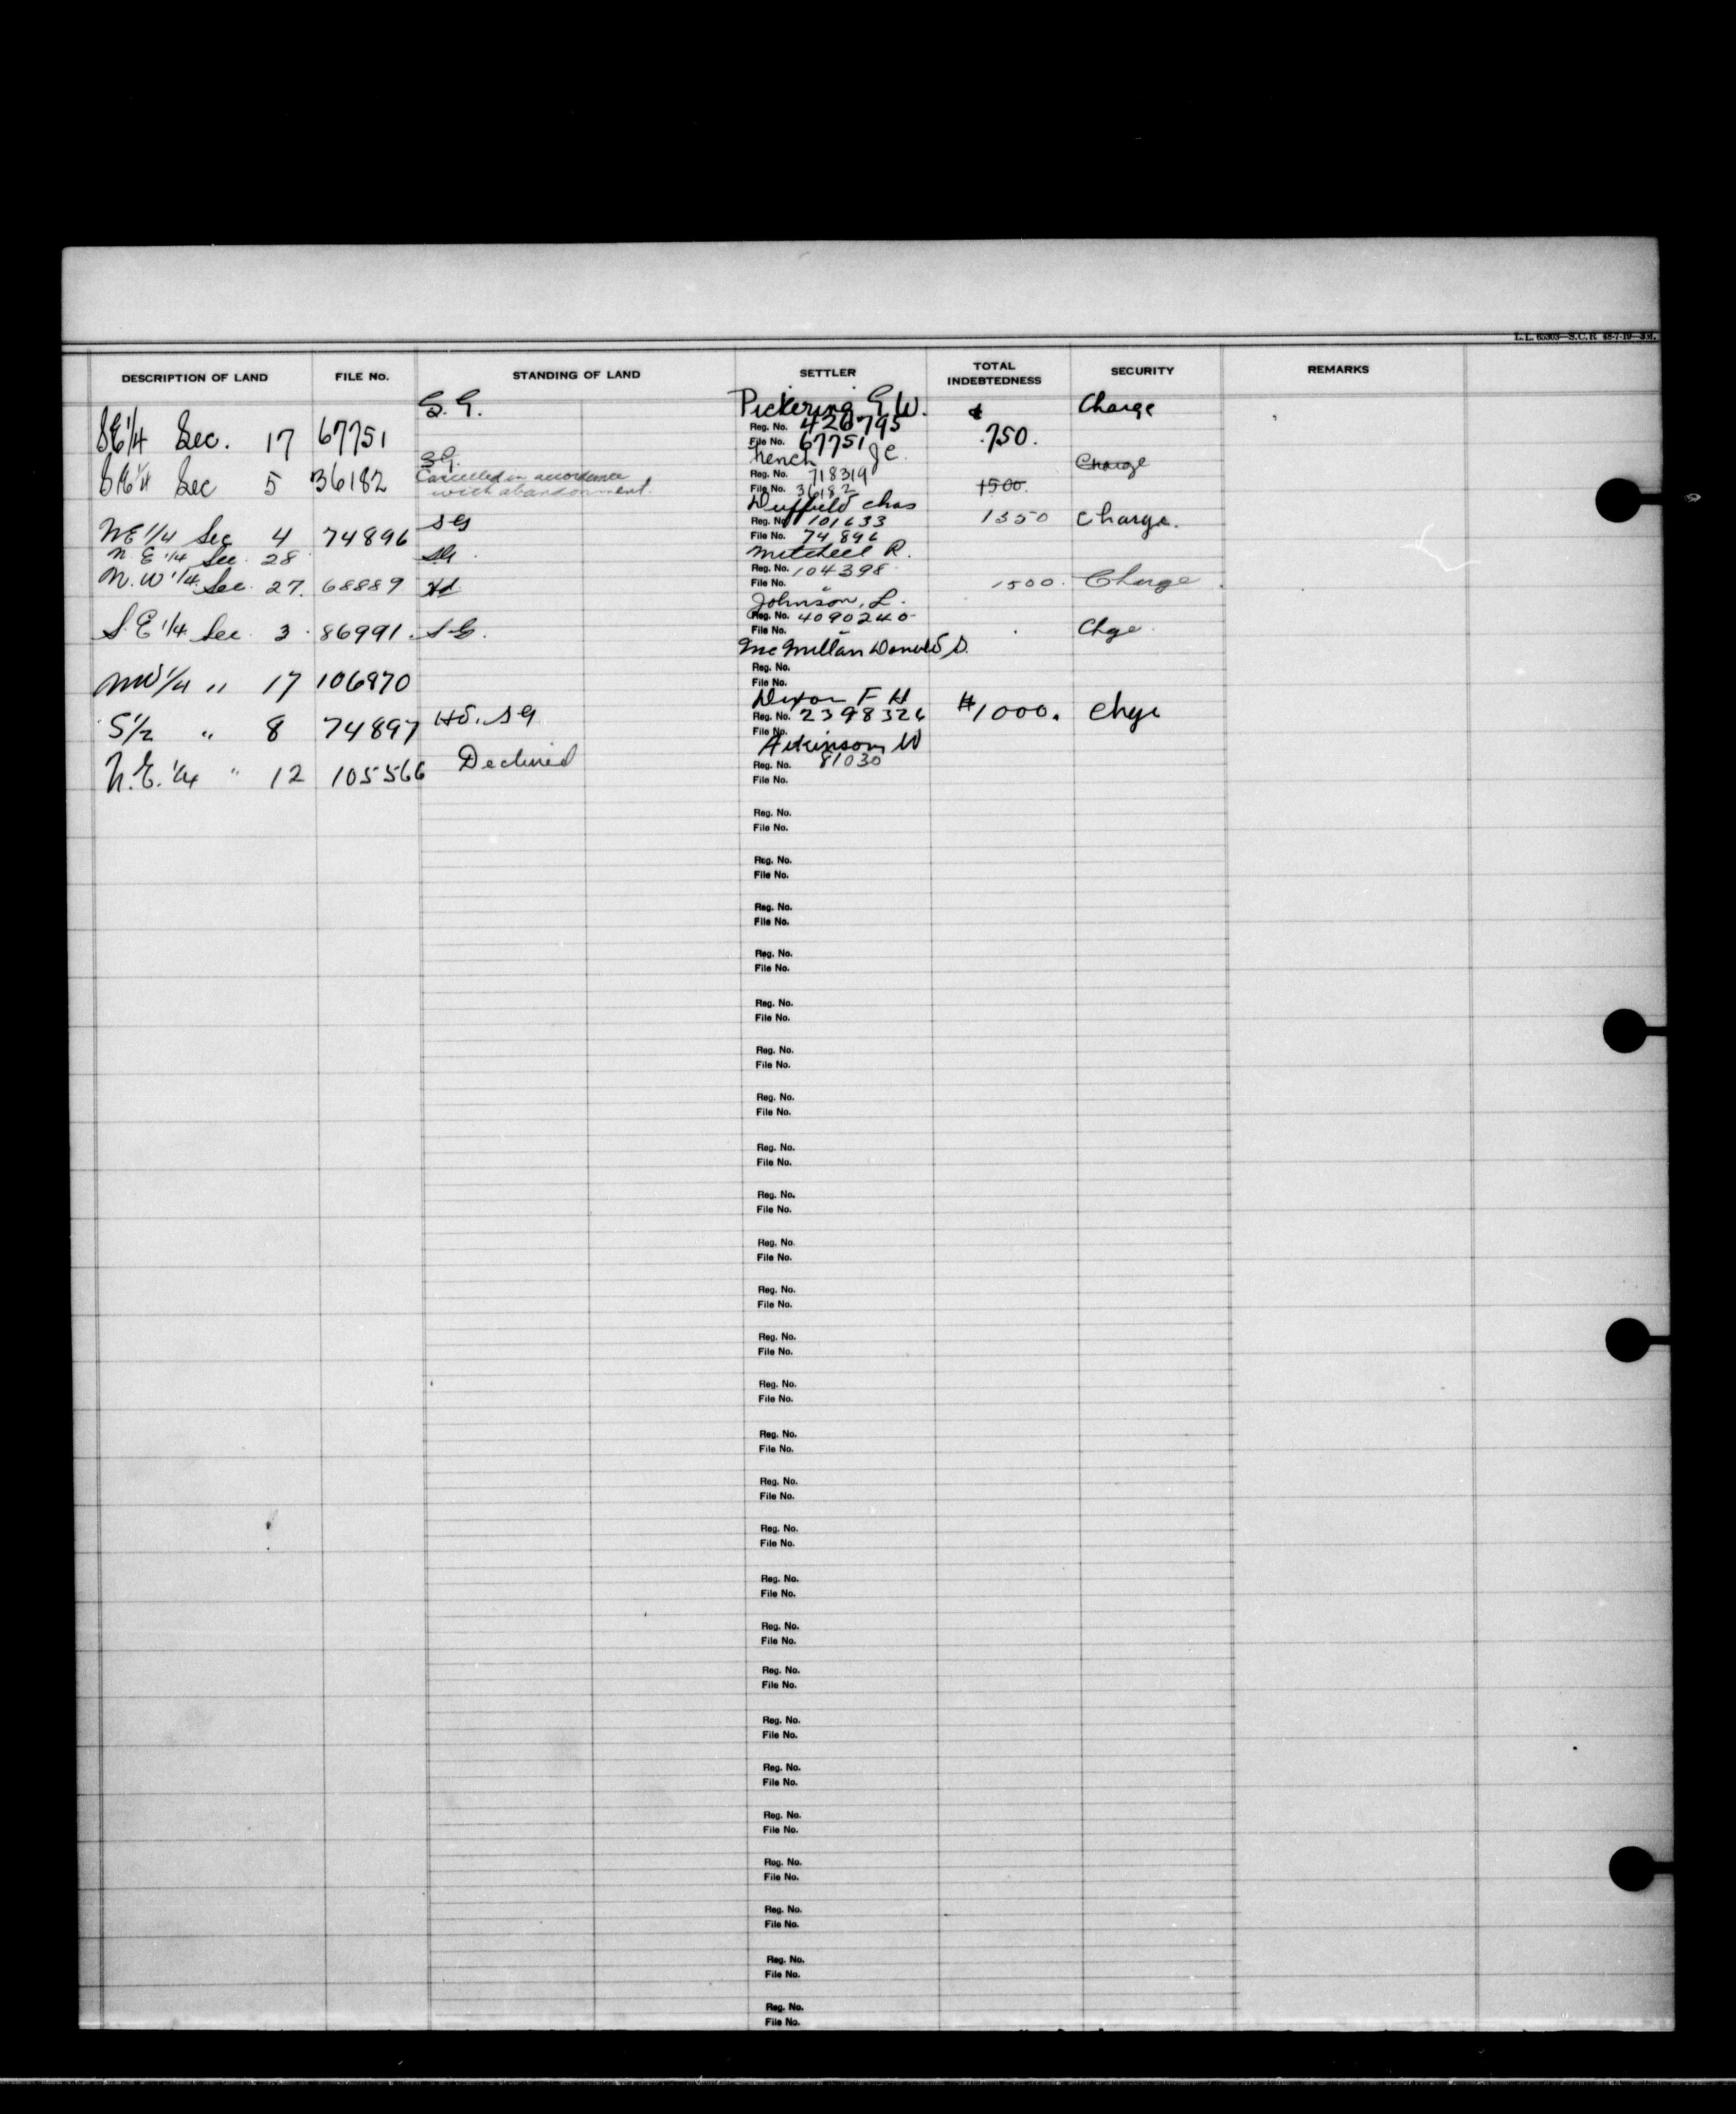 L.L. 65303—S.C.R. 48-7-19—3M.
DESCRIPTION OF LAND FILE No. STANDING OF LAND SETTLER TOTAL INDEBTEDNESS SECURITY REMARKS
S.G. Pickering G.W. Charge
SE 1/4 Sec. 17 67751 Reg. No. 426795 750.
File No. 67751
S.G. J.C. Charge
SE 1/4 Sec 5 36182 Cancelled in accordance Reg. No. 718319
with abandonment. File No. 36182 1500.
Duffield Chas
SG Reg. No. 101633 1350 Charge.
NE 1/4 Sec 4 74896 File No. 74896
N.E 1/4 Sec. 28 SG Mitchell R.
Reg. No. 104398
N.W 1/4 Sec. 27. 68889 Hd File No. 1500. Charge
Johnson, L.
Reg. No. 4090240
S.E 1/4 Sec 3 86991. S.G. File No. Chge
McMillan Donald D.
Reg. No.
NW 1/4 " 17 106970 File No.
Dixon F H
S 1/2 " 8 74897 Hd. SG Reg. No. 2398326 $1000. Chge
File No.
Atkinson W
N.E. 1/4 " 12 105566 Declined Reg. No. 81030
File No.
Reg. No.
File No.
Reg. No.
File No.
Reg. No.
File No.
Reg. No.
File No.
Reg. No.
File No.
Reg. No.
File No.
Reg. No.
File No.
Reg. No.
File No.
Reg. No.
File No.
Reg. No.
File No.
Reg. No.
File No.
Reg. No.
File No.
Reg. No.
File No.
Reg. No.
File No.
Reg. No.
File No.
Reg. No.
File No.
Reg. No.
File No.
Reg. No.
File No.
Reg. No.
File No.
Reg. No.
File No.
Reg. No.
File No.
Reg. No.
File No.
Reg. No.
File No.
Reg. No.
File No.
Reg. No.
File No.
Reg. No.
File No.